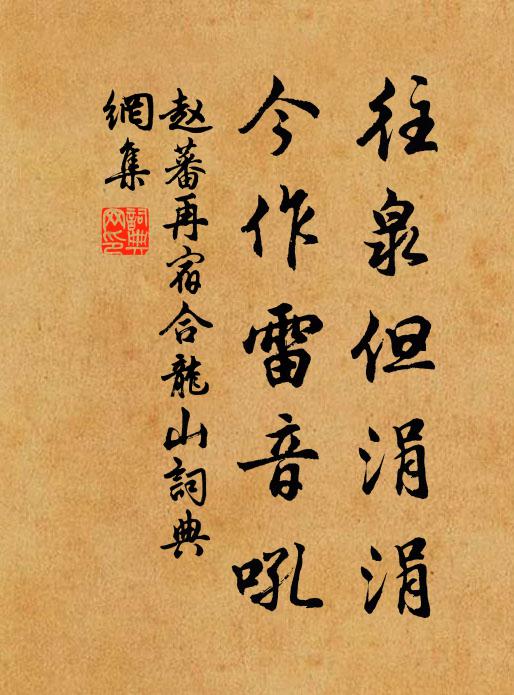 往泉但涓涓
今作雷音吼
赵蕃再宿合龍山詞典
網集
詞典
网印